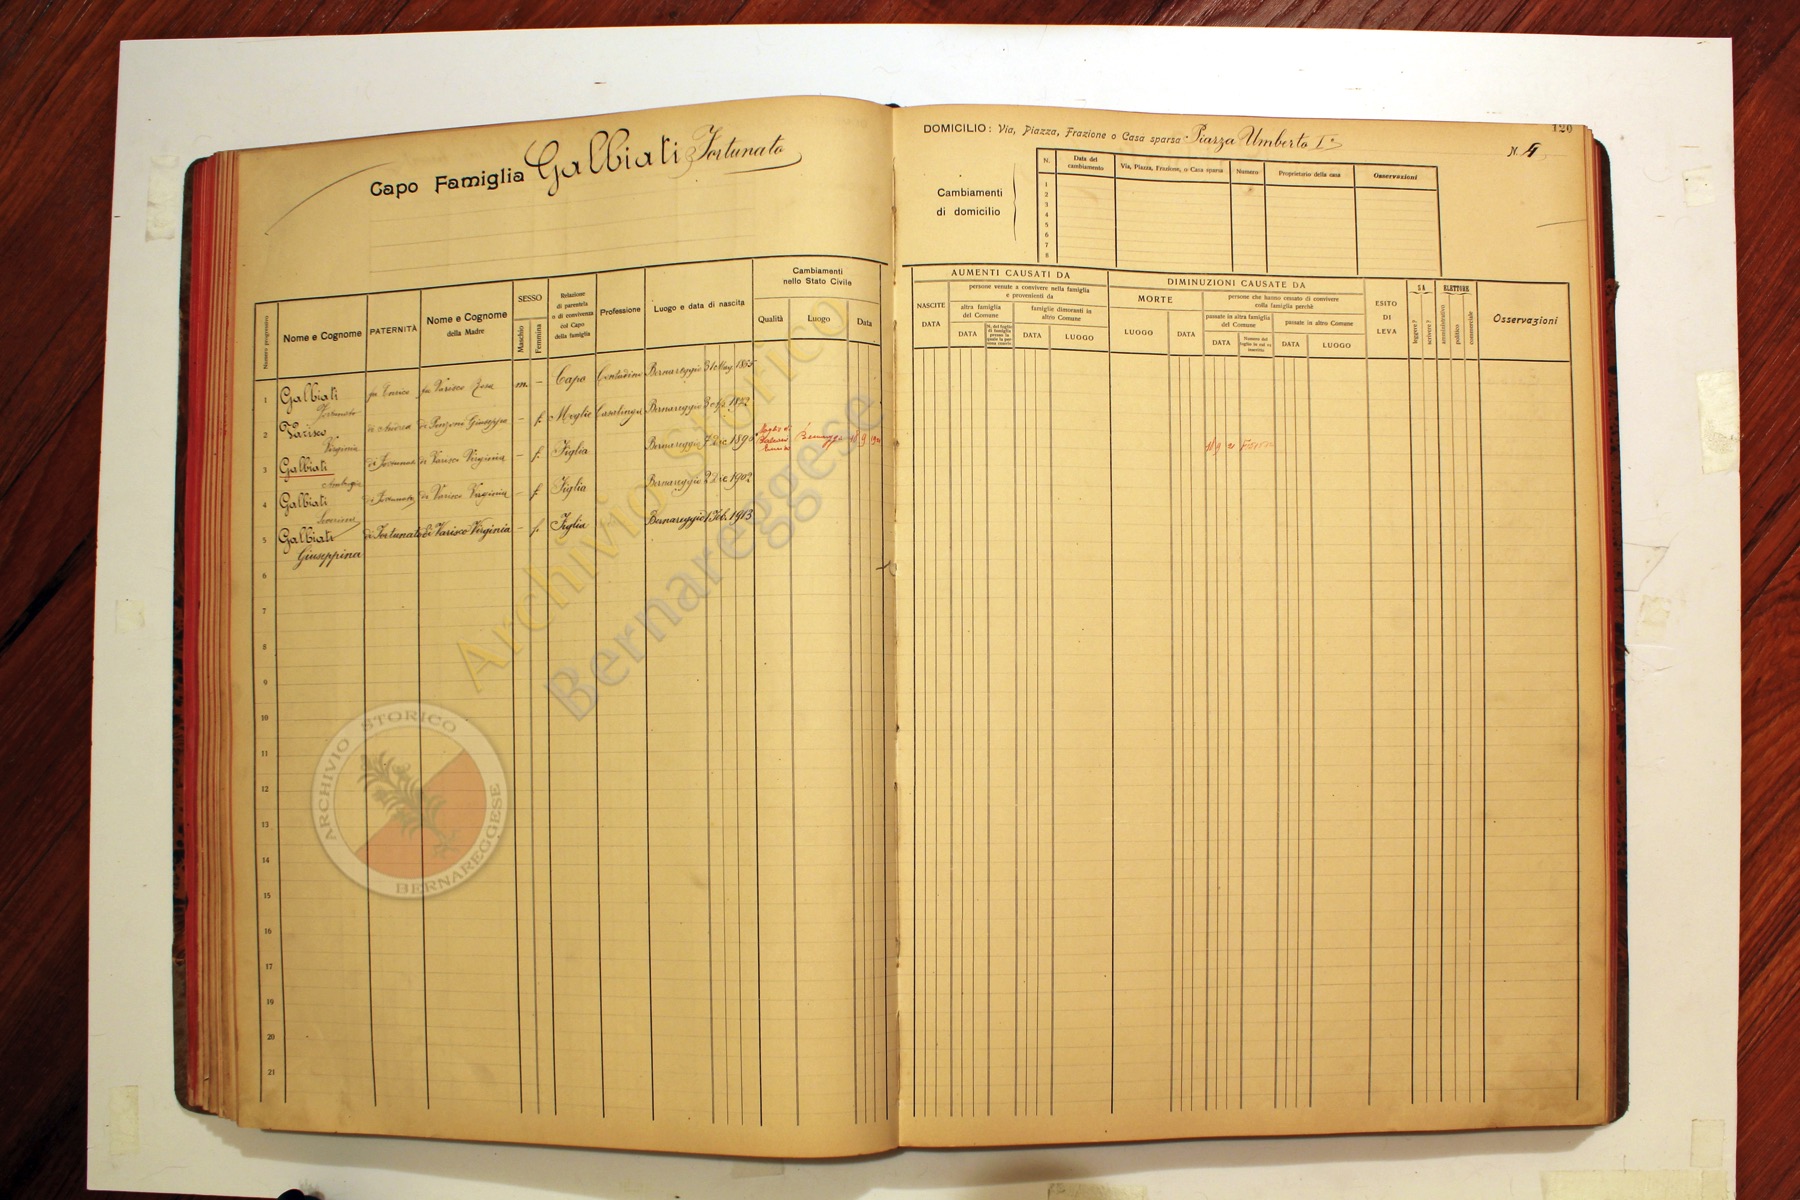 120
Capo Famiglia Galbiati Fortunato
DOMICILIO: Via, Piazza, Frazione o Casa sparsa Piazza Umberto I° N. 4
Cambiamenti
di domicilio
N. Data del cambiamento Via, Piazza, Frazione, o Casa sparsa Numero Proprietario della casa Osservazioni
1
2
3
4
5
6
7
8
Numero progressivo
Nome e Cognome
PATERNITÀ
Nome e Cognome
della Madre
SESSO
Maschio
Femmina
Relazione
di parentela
o di convivenza
col Capo
della famiglia
Professione
Luogo e data di nascita
Cambiamenti
nello Stato Civile
Qualità Luogo Data
1 Galbiati Fortunato fu Enrico fu Varisco m. – Capo Contadino Bernareggio
2 Varisco Virginia di Andrea di Ponzoni Giuseppa – f. Moglie Casalinga Bernareggio 1872
3 Galbiati di Fortunato di Varisco Virginia – f. Figlia Bernareggio 7 Dic 189 Moglie di Bernareggio 18 9
4 Galbiati Severina di Fortunato di Varisco Virginia – f. Figlia Bernareggio 2 Dic 1902
5 Galbiati Giuseppina di Fortunato di Varisco Virginia – f. Figlia Bernareggio 1 Feb. 1913
6
7
8
9
10
11
12
13
14
15
16
17
18
19
20
21
AUMENTI CAUSATI DA
NASCITE
DATA
persone venute a convivere nella famiglia
e provenienti da
altra famiglia
del Comune
DATA
famiglie dimoranti in
altro Comune
DATA LUOGO
DIMINUZIONI CAUSATE DA
MORTE
LUOGO DATA
persone che hanno cessato di convivere
colla famiglia perchè
passate in altra famiglia
del Comune
DATA
passate in altro Comune
DATA LUOGO
ESITO
DI
LEVA
SA
leggere?
scrivere?
ELETTORE
amministrativo
politico
commerciale
Osservazioni
Archivio Storico
Bernareggese
ARCHIVIO STORICO
BERNAREGGESE